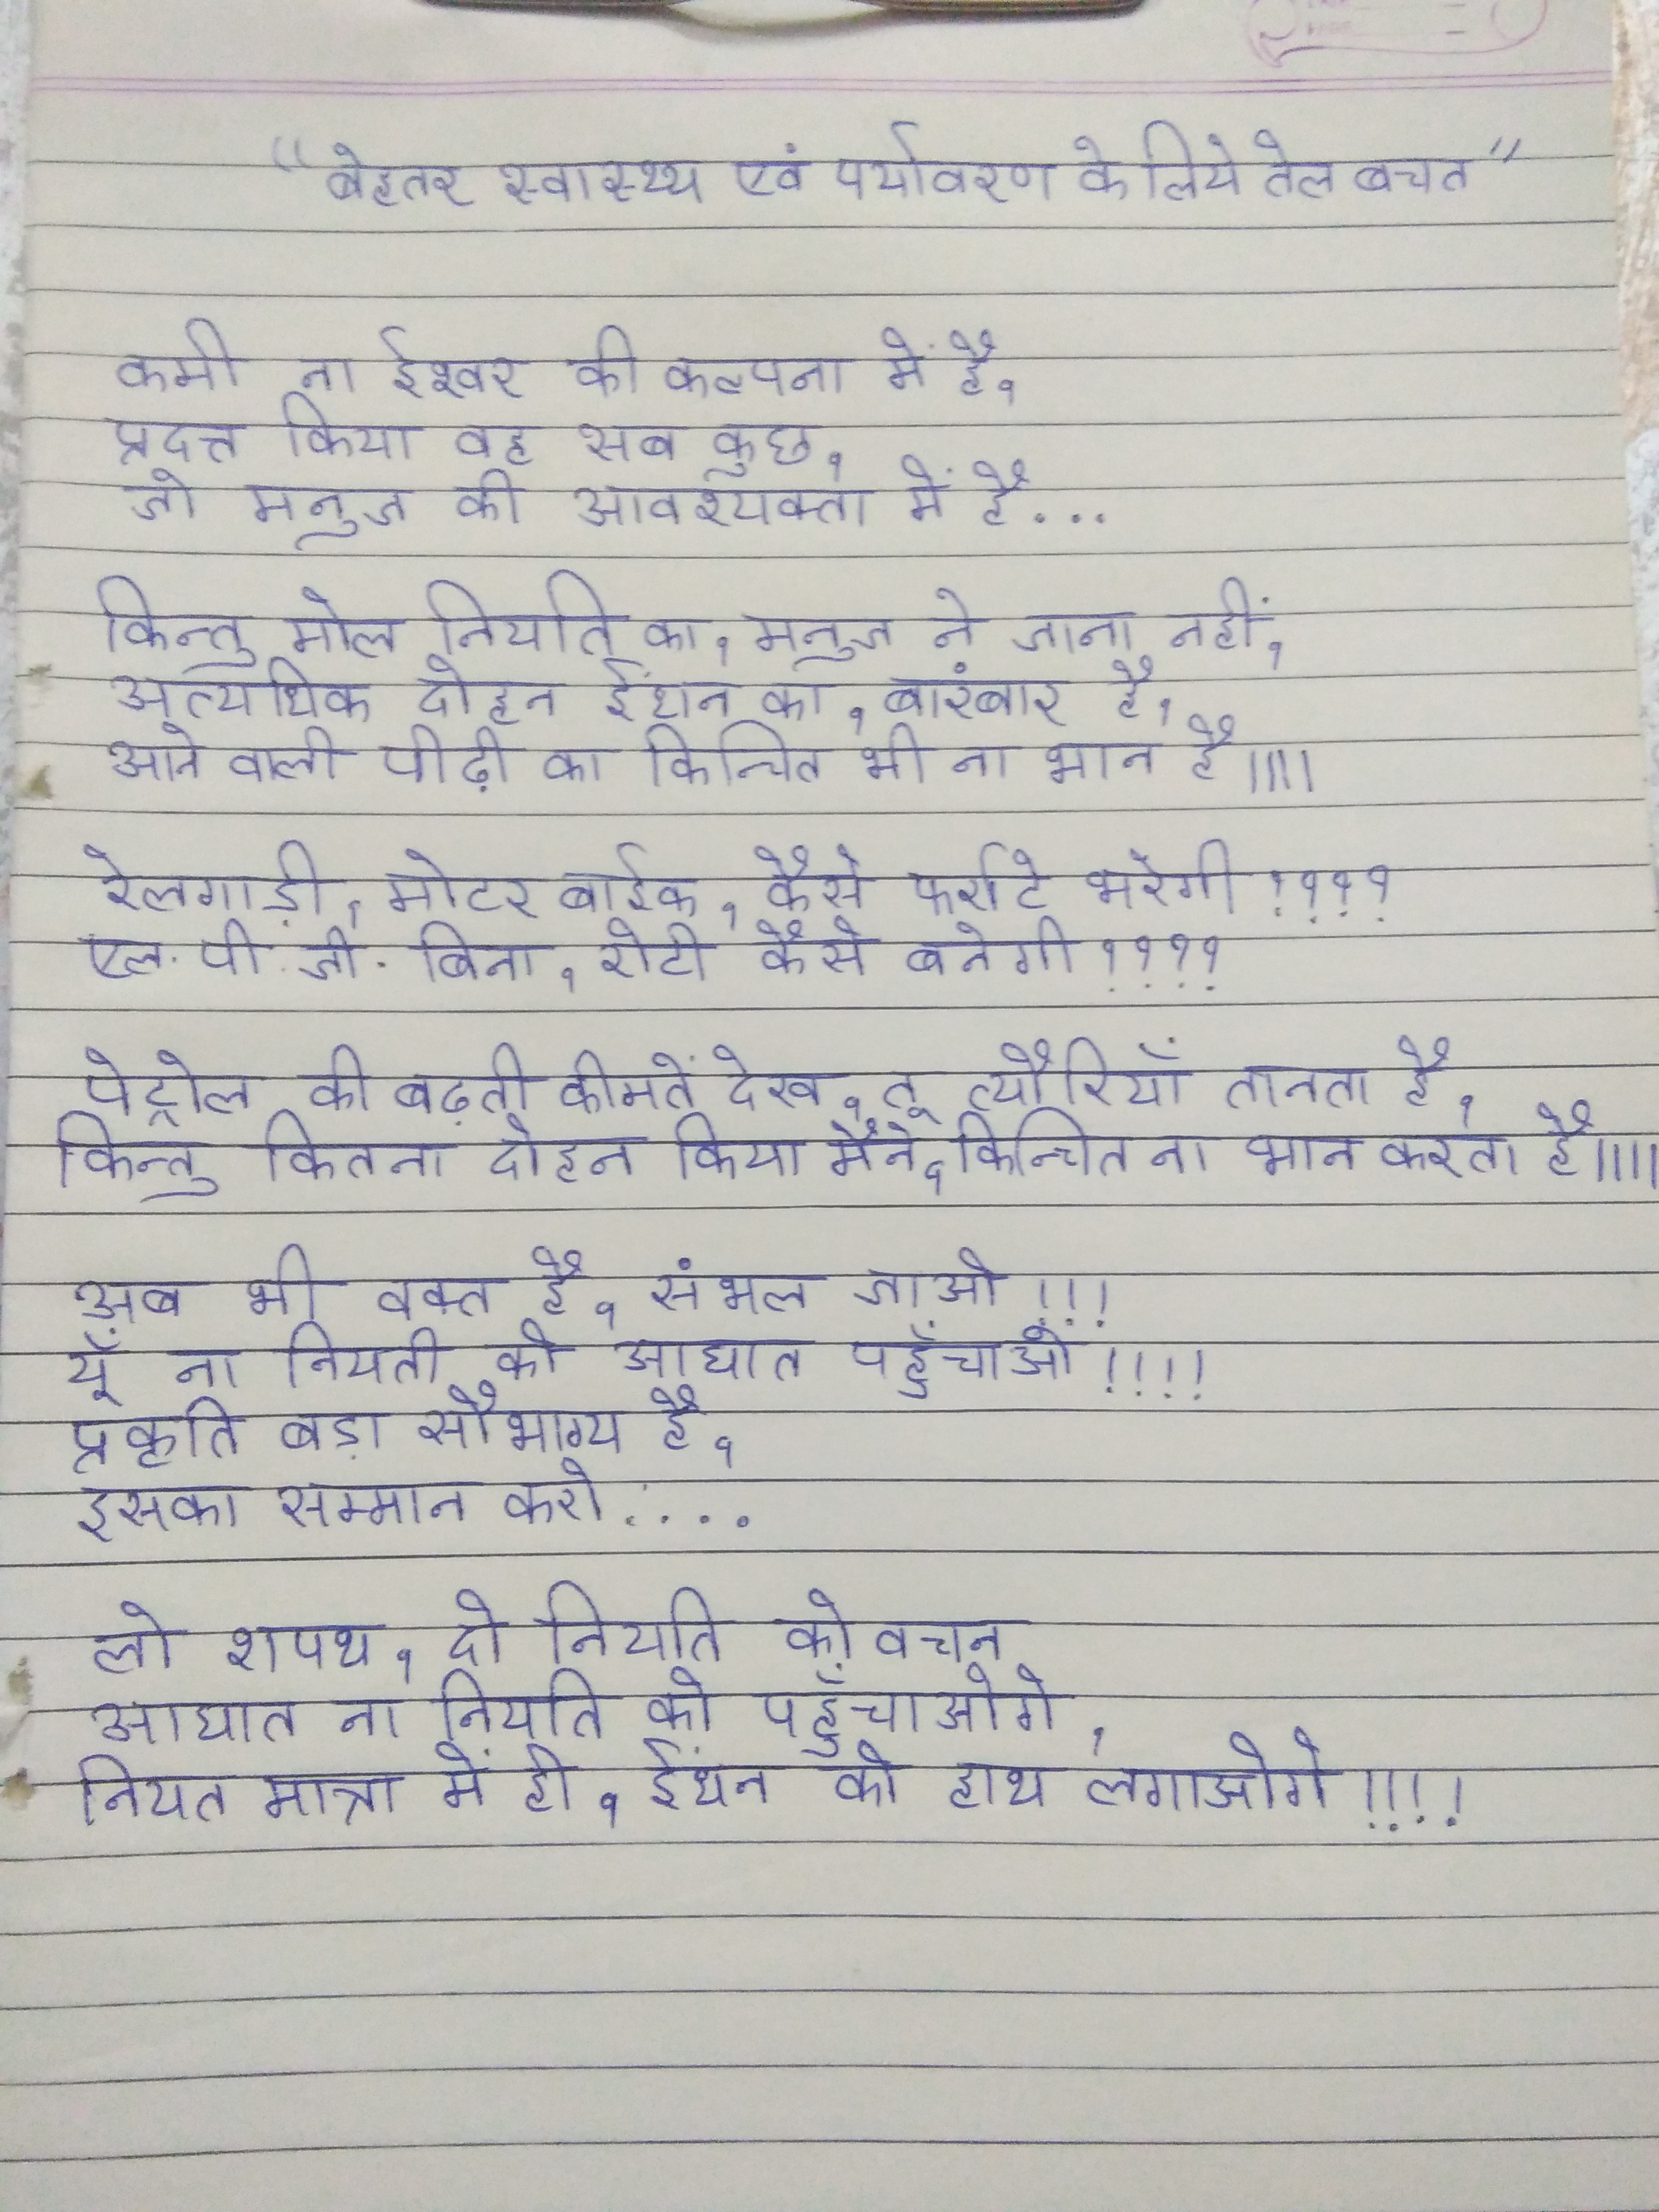 “बेहतर स्वास्थ्य एवं पर्यावरण के लिये तेल बचत”
कमी ना ईश्वर की कल्पना में है,
प्रदत्त किया वह सब कुछ,
जो मनुज की आवश्यक्ता में है...
किन्तु मोल नियति का, मनुज ने जाना नहीं,
अत्यधिक दोहन ईंधन का, बारंबार है,
आने वाली पीढ़ी का किन्चित भी ना भान है||||
रेलगाड़ी, मोटर बाईक, कैसे फर्राटे भरेगी ????
एल. पी. जी. बिना, रोटी कैसे बनेगी ????
पेट्रोल की बढ़ती कीमतें देख, तू त्यौरियाँ तानता है,
किन्तु कितना दोहन किया मैंने, किन्चित ना भान करता है||||
अब भी वक्त है, संभल जाओ !!!
यूँ ना नियती को आघात पहुँचाओ !!!!
प्रकृति बड़ा सौभाग्य है,
इसका सम्मान करो....
लो शपथ, दो नियति को वचन
आघात ना नियति को पहुँचाओगे,
नियत मात्रा में ही, ईंधन को हाथ लगाओगे !!!!